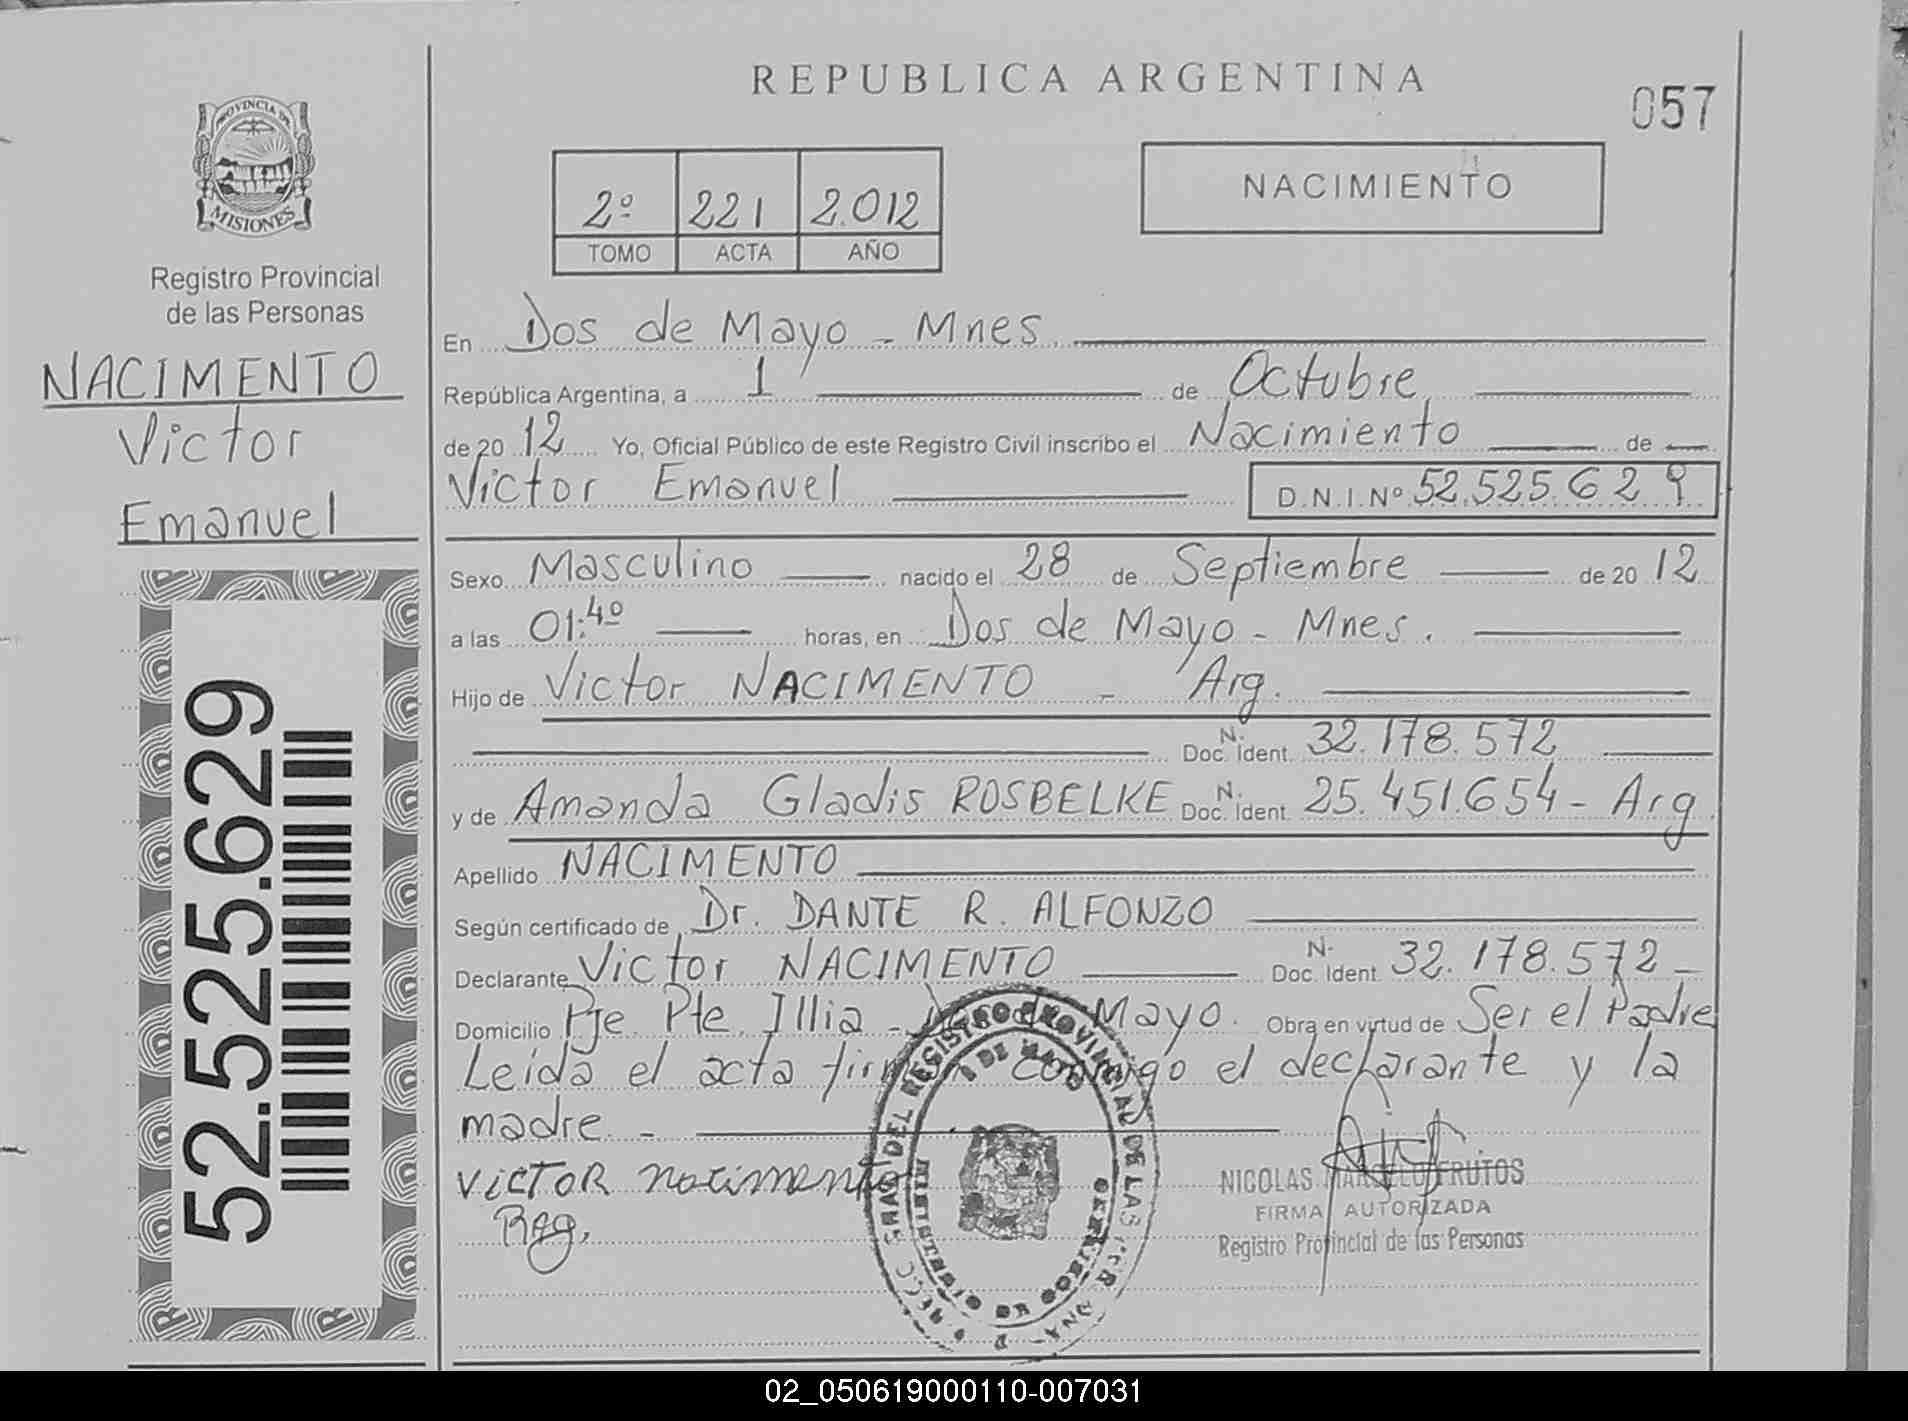 REPUBLICA ARGENTINA
057
PROVINCIA DE
MISIONES
Registro Provincial
de las Personas
NACIMENTO
Victor
Emanuel
52.525.629
2º 221 2.012
TOMO ACTA AÑO
NACIMIENTO
En Dos de Mayo - Mnes
República Argentina, a 1 de Octubre
de 20 12 Yo, Oficial Público de este Registro Civil inscribo el Nacimiento de
Victor Emanuel D.N.I.Nº 52.525.629
Sexo Masculino nacido el 28 de Septiembre de 20 12
a las 01:40 horas, en Dos de Mayo - Mnes.
Hijo de Victor NACIMENTO - Arg.
N. Doc. Ident. 32.178.572
y de Amanda Gladis ROSBELKE N. Doc. Ident. 25.451.654 - Arg
Apellido NACIMENTO
Según certificado de Dr. DANTE R. ALFONZO
Declarante Victor NACIMENTO N- Doc. Ident. 32.178.572 -
Domicilio Pje. Pte. Illia - Mayo. Obra en virtud de Ser el Padre
Leída el acta conmigo el declarante y la
madre. -
VICTOR nacimento
RAg.
REGISTRO PROVINCIAL DE LAS
NICOLAS MARCELO FRUTOS
FIRMA AUTORIZADA
Registro Provincial de las Personas
02_050619000110-007031